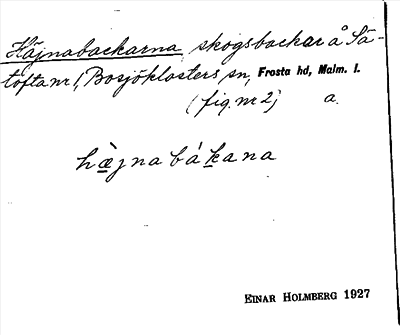 Häjnabackarna, skogsbackar å Sä-
tofta nr 1, Bosjöklosters sn, Frosta hd, Malm. l.
(fig. nr 2) a.
hæ̀jnabákana
EINAR HOLMBERG 1927